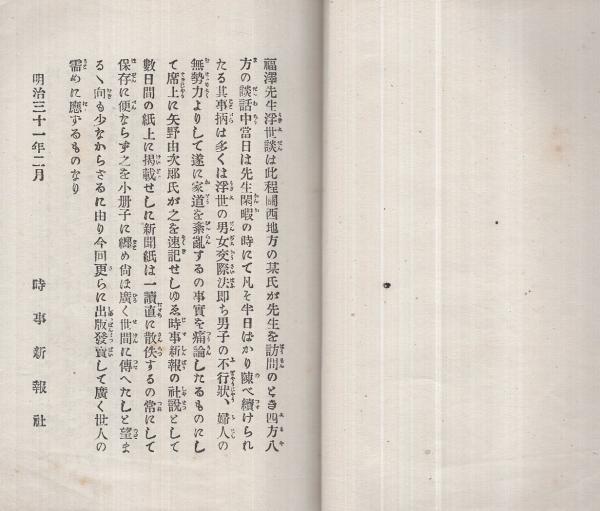 福澤先生浮世談は此程關西地方の某氏が先生を訪問のとき四方八
方の談話中當日は先生閑暇の時にて凡そ半日ばかり陳べ續けられ
たる其事柄は多くは浮世の男女交際法即ち男子の不行狀、婦人の
無勢力よりして遂に家道を紊亂するの事實を痛論したるものにし
て席上に矢野由次郎氏が之を速記せしゆゑ時事新報の社説として
數日間の紙上に掲載せしに新聞紙は一讀直に散佚するの常にして
保存に便ならず之を小册子に纏め尙ほ廣く世間に傳へたしと望ま
るゝ向も少なからざるに由り今回更らに出版發賣して廣く世人の
需めに應するものなり
明治三十一年二月
時事新報社